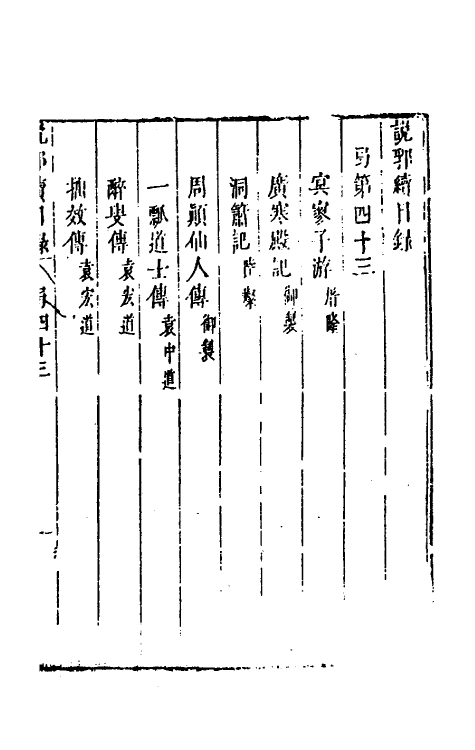 說郛續目錄
弓第四十三
冥寥子游 屠隆
廣寒殿記 御製
洞簫記 陸粲
周顛仙人傳 御製
一瓢道士傳 袁中道
醉叟傳 袁宏道
拙效傳 袁宏道
說郛續目錄 弓四十三 一